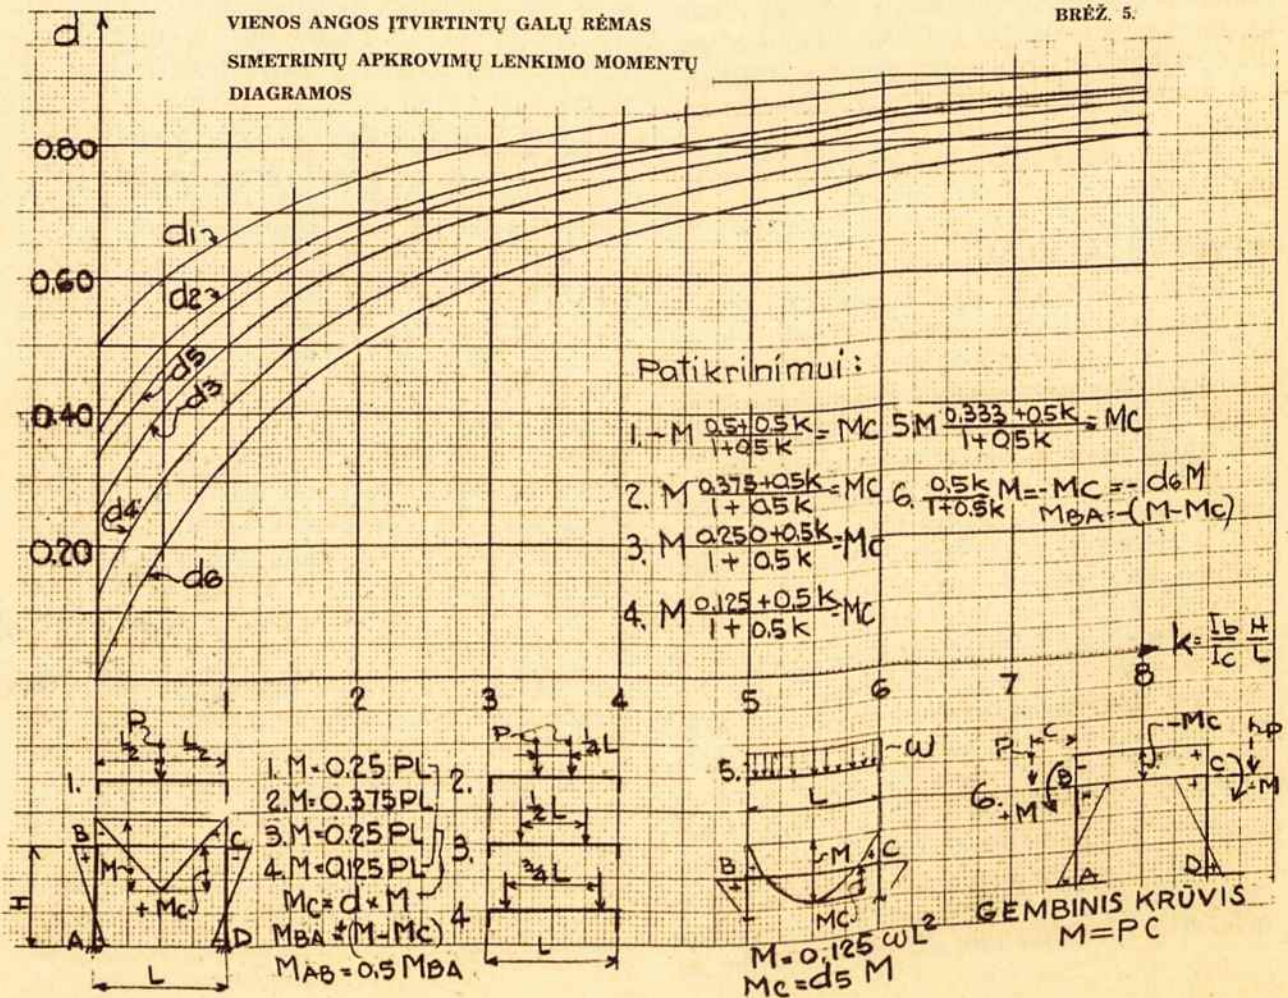 VIENOS ANGOS ĮTVIRTINTŲ GALŲ RĖMAS
SIMETRINIŲ APKROVIMŲ LENKIMO MOMENTŲ
DIAGRAMOS
BRĖŽ. 5.
d
0.80
0.60
0.40
0.20
d1
d2
d5
d3
d4
d6
Patikrilnimui:
1. -M (0.5+0.5k)/(1+0.5k) = MC
5. M (0.333+0.5k)/(1+0.5k) = MC
2. M (0.375+0.5k)/(1+0.5k) = MC
6. (0.5k)/(1+0.5k) M = -MC = -d6M
MBA = -(M-MC)
3. M (0.250+0.5k)/(1+0.5k) = MC
4. M (0.125+0.5k)/(1+0.5k) = MC
k = Ib/Ic H/L
1 2 3 4 5 6 7 8
P
L/2 L/2
1.
B C
M
+MC
H
A D
L
1. M=0.25 PL
2. M=0.375 PL
3. M=0.25 PL
4. M=0.125 PL
MC = d × M
MBA = ±(M-MC)
MAB = 0.5 MBA
P 1/4 L
2.
1/2 L
3.
3/4 L
4.
L
ω
5.
L
B M C
d
MC
M=0.125 ωL²
MC=d5 M
P C -MC P
B C
6. +M -M
A D
GEMBINIS KRŪVIS
M=PC